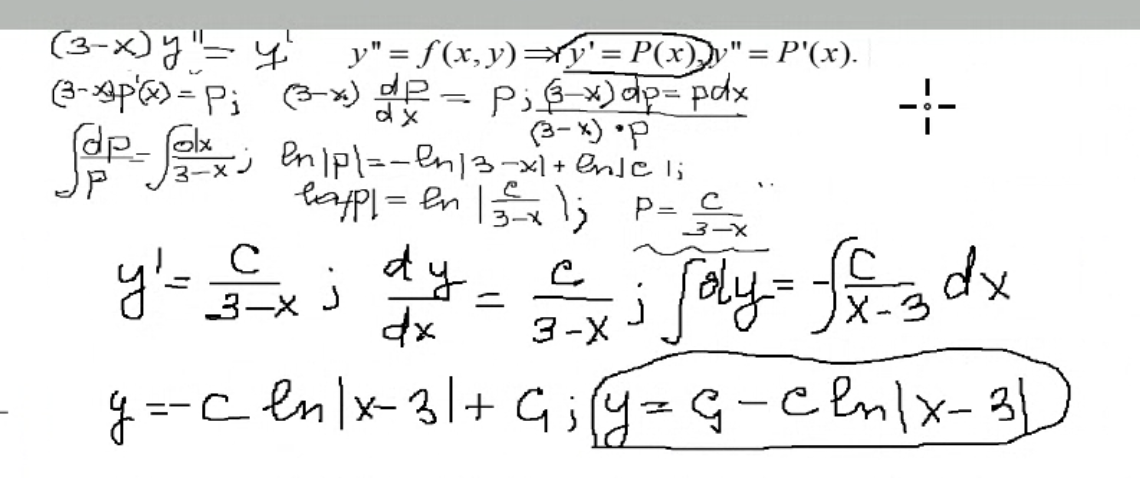 (3-x)y''=y' y''=f(x,y)⇒y'=P(x),y''=P'(x).
(3-x)p'(x)=P; (3-x) dp/dx = P; (3-x)dp=pdx / (3-x)•p
∫dp/p=∫dx/3-x; ln|p|=-ln|3-x|+ln|c|;
ln|p|=ln|c/3-x|; P=c/3-x
y'=C/3-x; dy/dx=c/3-x; ∫dy=-∫C/x-3 dx
y=-C ln|x-3|+C₁; y=C₁-C ln|x-3|